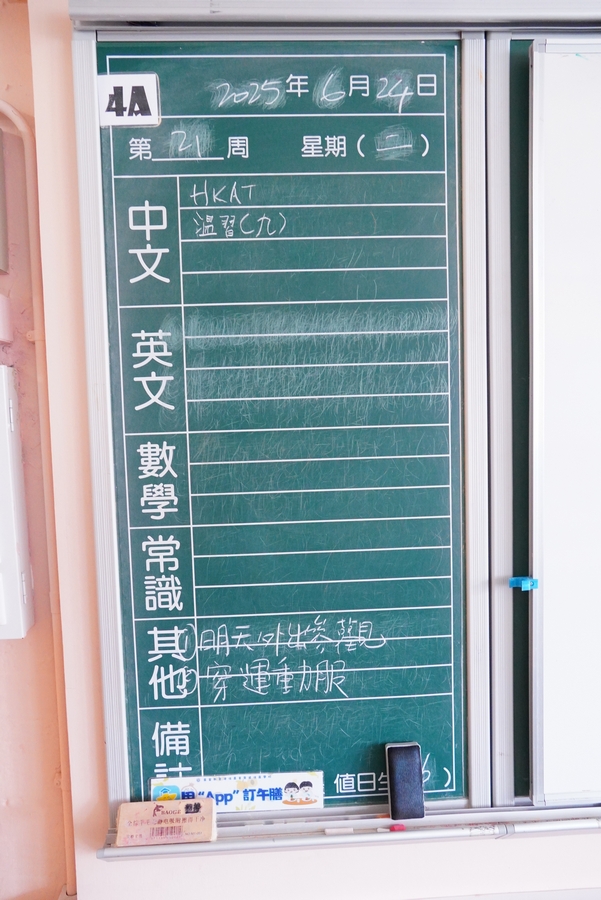 4A
2025年6月24日
第 21 周 星期(二)
中文
HKAT
温習(九)
英文
數學
常識
其他
①明天外出參觀
②穿運動服
備註
值日生
6)
用"App"訂午膳